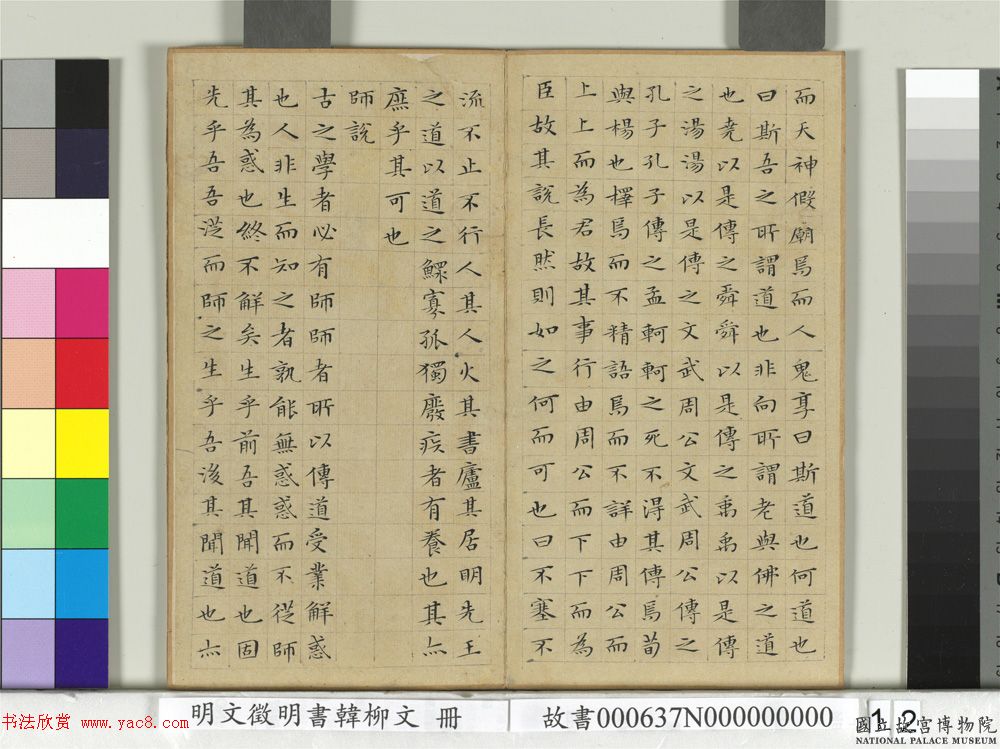 而天神假廟焉而人鬼享曰斯道也何道也
曰斯吾之所謂道也非向所謂老與佛之道
也堯以是傳之舜舜以是傳之禹禹以是傳
之湯湯以是傳之文武周公文武周公傳之
孔子孔子傳之孟軻軻之死不得其傳焉荀
與楊也擇焉而不精語焉而不詳由周公而
上上而為君故其事行由周公而下下而為
臣故其說長然則如之何而可也曰不塞不
流不止不行人其人火其書廬其居明先王
之道以道之鰥寡孤獨廢疾者有養也其亦
庶乎其可也
師說
古之學者必有師師者所以傳道受業解惑
也人非生而知之者孰能無惑惑而不從師
其為惑也終不解矣生乎前吾其聞道也固
先乎吾吾從而師之生乎吾後其聞道也亦
明文徵明書韓柳文 冊
故書000637N000000000
12
书法欣赏 www.yac8.com
國立故宮博物院
NATIONAL PALACE MUSEUM